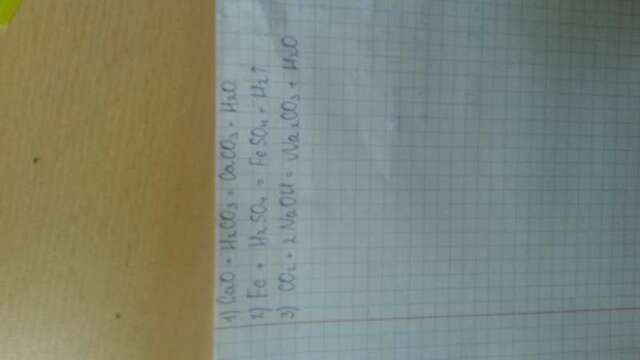 1) CaO + H₂CO₃ = CaCO₃ + H₂O
2) Fe + H₂SO₄ = FeSO₄ + H₂↑
3) CO₂ + 2NaOH = Na₂CO₃ + H₂O